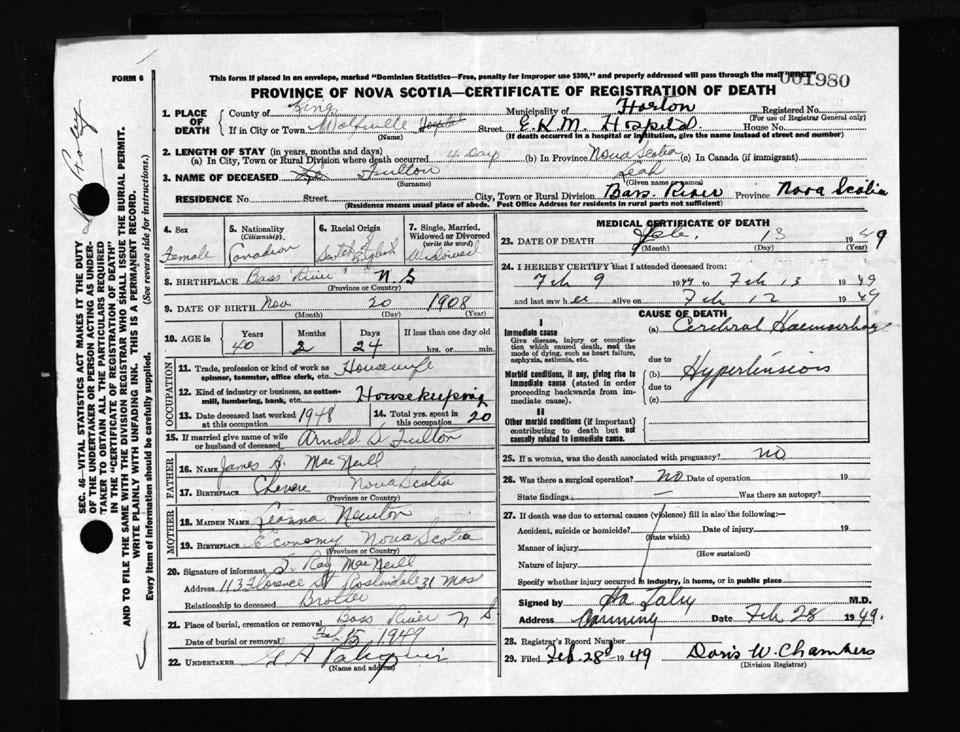 FORM 6
This form if placed in an envelope, marked "Dominion Statistics—Free, penalty for improper use $300," and properly addressed will pass through the mail "FREE"
001980
PROVINCE OF NOVA SCOTIA—CERTIFICATE OF REGISTRATION OF DEATH
1. PLACE OF DEATH
County of Kings Municipality of Horton Registered No.
(For use of Registrar General only)
If in City or Town Wolfville Hospital Street E.K.M. Hospital House No.
(Name) (If death occurred in a hospital or institution, give the name instead of street and number)
2. LENGTH OF STAY (in years, months and days)
(a) In City, Town or Rural Division where death occurred 4 Day (b) In Province Nova Scotia (c) In Canada (if immigrant)
3. NAME OF DECEASED Fulton Leah
(Surname) (Given name or names)
RESIDENCE No. Street City, Town or Rural Division Bass River Province Nova Scotia
(Residence means usual place of abode. Post Office Address for residents in rural parts not sufficient)
4. Sex Female
5. Nationality (Citizenship) Canadian
6. Racial Origin English
7. Single, Married, Widowed or Divorced (write the word)
8. BIRTHPLACE Bass River N.S
(Province or Country)
9. DATE OF BIRTH Nov 20 1908
(Month) (Day) (Year)
10. AGE in Years Months Days If less than one day
40 2 24 hrs. or min.
OCCUPATION
11. Trade, profession or kind of work as spinner, teamster, office clerk, etc. Housewife
12. Kind of industry or business, as cotton-mill, lumbering, bank, etc. Housekeeping
13. Date deceased last worked at this occupation 1948
14. Total yrs. spent in this occupation 20
15. If married give name of wife or husband of deceased Arnold D Fulton
FATHER
16. NAME James A. MacNeill
17. BIRTHPLACE Nova Scotia
(Province or Country)
MOTHER
18. MAIDEN NAME Leanna Newton
19. BIRTHPLACE Economy Nova Scotia
(Province or Country)
20. Signature of informant Ray MacNeill
Address 113 Florence St Roslindale 31 Mas
Relationship to deceased Brother
21. Place of burial, cremation or removal Bass River N S
Date of burial or removal Feb 15 1949
22. UNDERTAKER
(Name and address)
MEDICAL CERTIFICATE OF DEATH
23. DATE OF DEATH Feb. 13 1949
(Month) (Day) (Year)
24. I HEREBY CERTIFY that I attended deceased from:
Feb 9 1949 to Feb 13 1949
and last saw h er alive on Feb 12 1949
CAUSE OF DEATH
I
Immediate cause
Give disease, injury or complication which caused death, not the mode of dying, such as heart failure, asphyxia, asthenia, etc.
(a) Cerebral Haemorrhage
due to
Morbid conditions, if any, giving rise to immediate cause (stated in order proceeding backwards from immediate cause).
(b) Hypertension
due to
(c)
II
Other morbid conditions (if important) contributing to death but not causally related to immediate cause.
25. If a woman, was the death associated with pregnancy? no
26. Was there a surgical operation? no Date of operation 19
State findings — Was there an autopsy?
27. If death was due to external causes (violence) fill in also the following:—
Accident, suicide or homicide? Date of injury 19
(State which)
Manner of injury
(How sustained)
Nature of injury
Specify whether injury occurred in industry, in home, or in public place
Signed by M.D.
Address Canning Date Feb 28 1949.
28. Registrar's Record Number
29. Filed Feb. 28d 1949 Doris W. Chambers
(Division Registrar)
SEC. 46—VITAL STATISTICS ACT MAKES IT THE DUTY
OF THE UNDERTAKER OR PERSON ACTING AS UNDER-
TAKER TO OBTAIN ALL THE PARTICULARS REQUIRED
IN THE "CERTIFICATE OF REGISTRATION OF DEATH"
AND TO FILE THE SAME WITH THE DIVISION REGISTRAR WHO SHALL ISSUE THE BURIAL PERMIT.
WRITE PLAINLY WITH UNFADING INK. THIS IS A PERMANENT RECORD.
Every item of information should be carefully supplied. (See reverse side for instructions.)